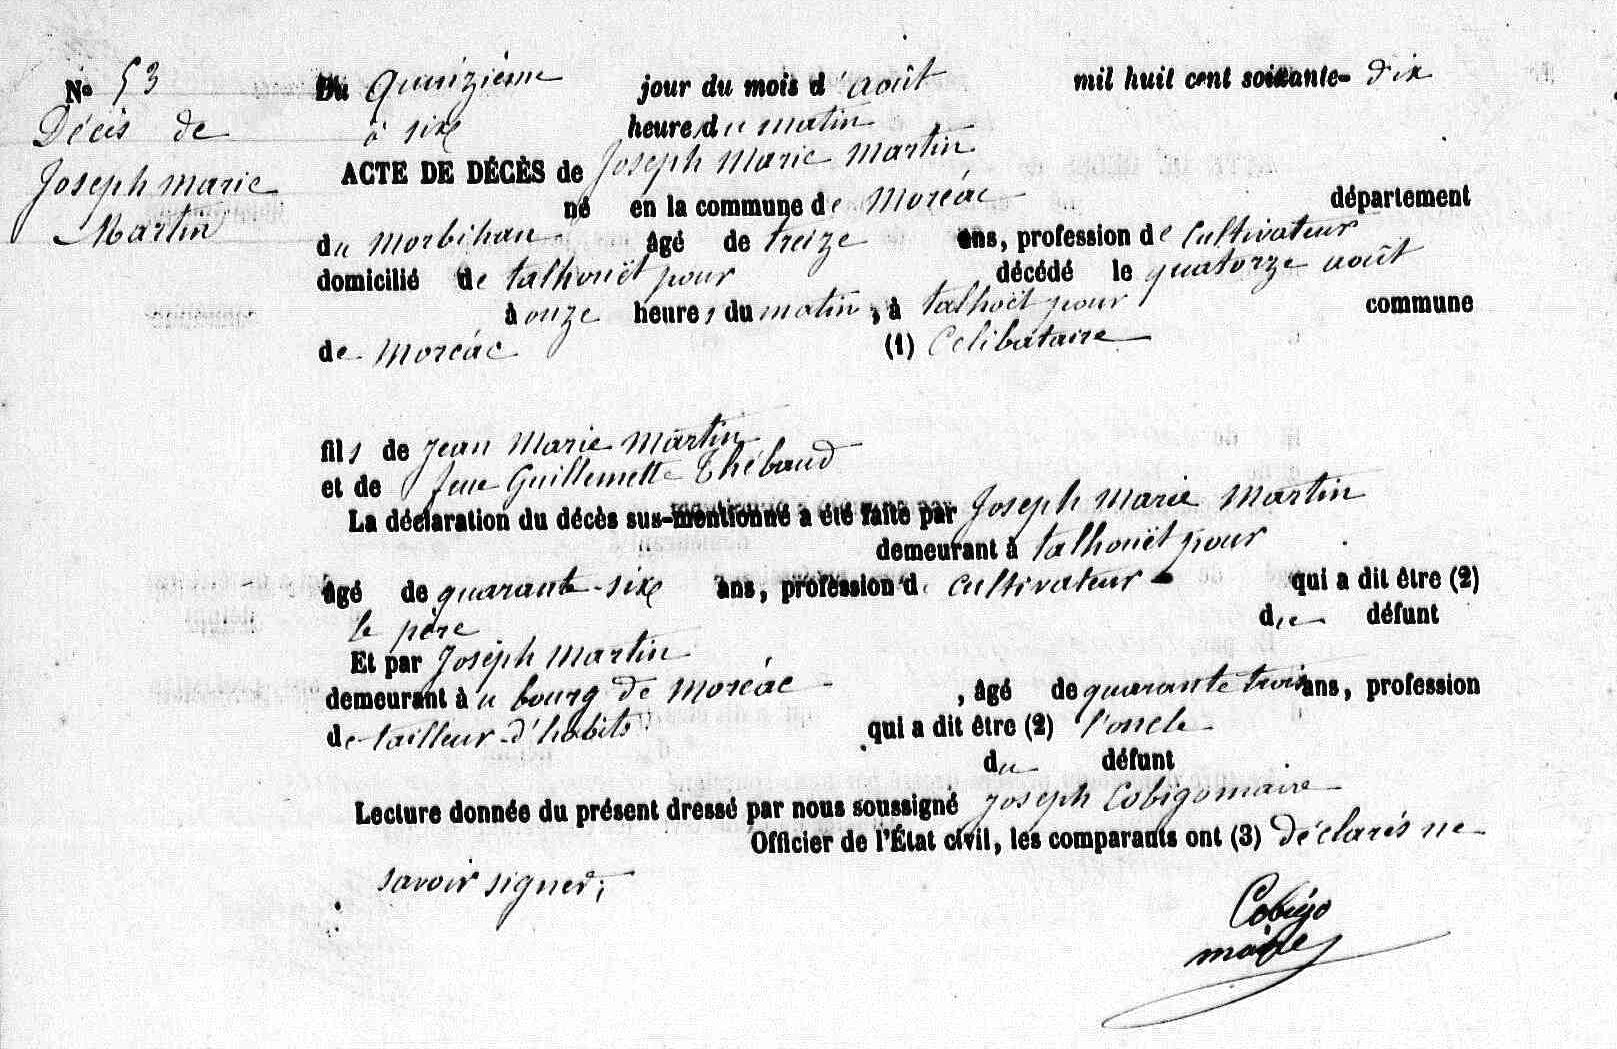 No 53
Décès de
Joseph Marie
Martin
Du Quinzième jour du mois d'août mil huit cent soixante-dix
à six heures du matin
ACTE DE DÉCÈS de Joseph Marie Martin
né en la commune de Moréac département
du Morbihan âgé de treize ans, profession de cultivateur
domicilié de talhouët pour décédé le quatorze août
à onze heures du matin, à talhoët pour commune
de Moréac (1) Celibataire
fils de Jean Marie Martin
et de feue Guillemette Thébaud
La déclaration du décès sus-mentionné a été faite par Joseph Marie Martin
demeurant à talhouët pour
âgé de quarante-six ans, profession de cultivateur qui a dit être (2)
le père du défunt
Et par Joseph Martin
demeurant au bourg de Moréac, âgé de quarante trois ans, profession
de tailleur d'habits qui a dit être (2) l'oncle
du défunt
Lecture donnée du présent dressé par nous soussigné Joseph Cobigo maire
Officier de l'État civil, les comparants ont (3) déclarés ne
savoir signer;
Cobigo
maire